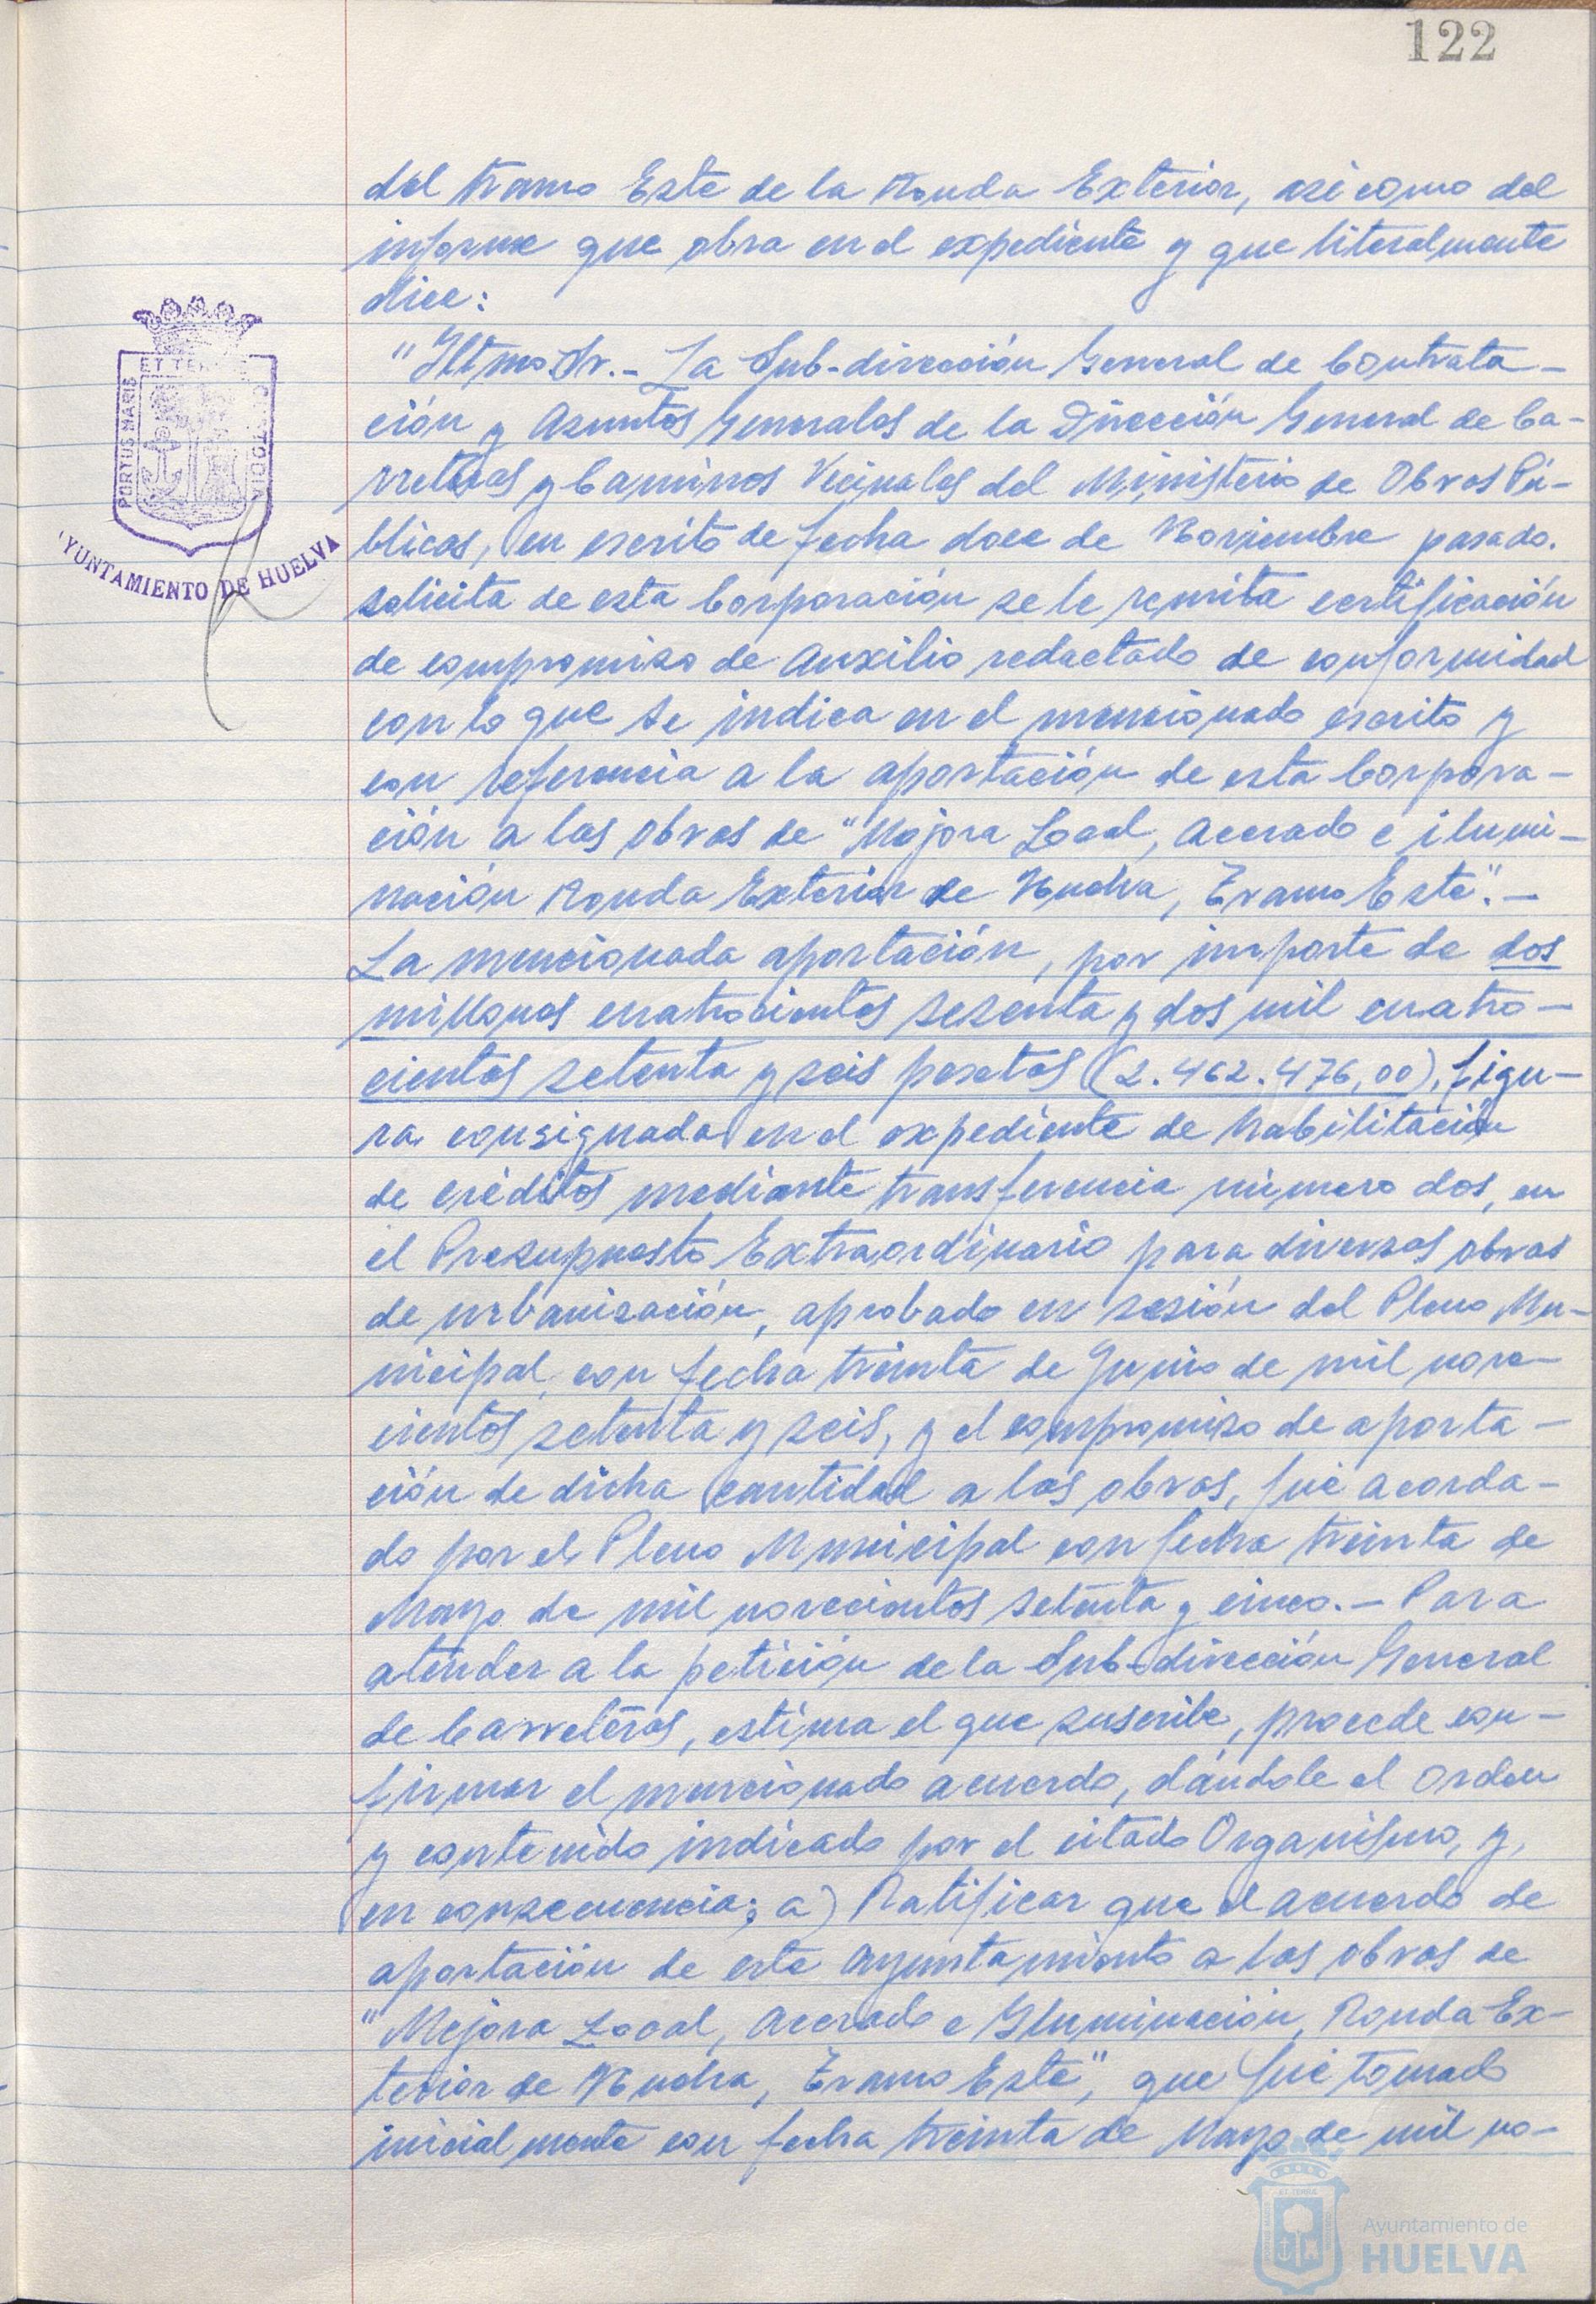 122
del tramo Este de la Ronda Exterior, asi como del
informe que obra en el expediente y que literalmente
dice:
"Iltmo Sr.- La Sub-dirección General de Contrata-
ción y Asuntos Generales de la Dirección General de Ca-
rreteras y Caminos Vecinales del Ministerio de Obras Pú-
blicas, en escrito de fecha doce de Noviembre pasado.
solicita de esta Corporación se le remita certificación
de compromiso de Auxilio redactado de conformidad
con lo que se indica en el mencionado escrito y
con referencia a la aportación de esta Corpora-
ción a las obras de "Mejora Local, Acerado e ilumi-
nación Ronda Exterior de Huelva, Tramo Este".-
La mencionada aportación, por importe de dos
millones cuatrocientos sesenta y dos mil cuatro-
cientas setenta y seis pesetas (2.462.476,00), figu-
ra consignada en el expediente de habilitación
de créditos mediante transferencia número dos, en
el Presupuesto Extraordinario para diversas obras
de urbanización, aprobado en sesión del Pleno Mu-
nicipal, con fecha treinta de Junio de mil nove-
cientos setenta y seis, y el compromiso de aporta-
ción de dicha cantidad a las obras, fué acorda-
do por el Pleno Municipal con fecha treinta de
Mayo de mil novecientos setenta y cinco.- Para
atender a la petición de la Sub-dirección General
de Carreteras, estima el que suscribe, procede con-
firmar el mencionado acuerdo, dándole el orden
y contenido indicado por el citado Organismo, y,
en consecuencia; a) Ratificar que el acuerdo de
aportación de este Ayuntamiento a las obras de
"Mejora Local, Acerado e Iluminación, Ronda Ex-
terior de Huelva, Tramo Este", que fué tomado
inicialmente con fecha treinta de Mayo de mil no-
PORTUS MARIS
ET TERRE
CUSTODIA
AYUNTAMIENTO DE HUELVA
Ayuntamiento de
HUELVA